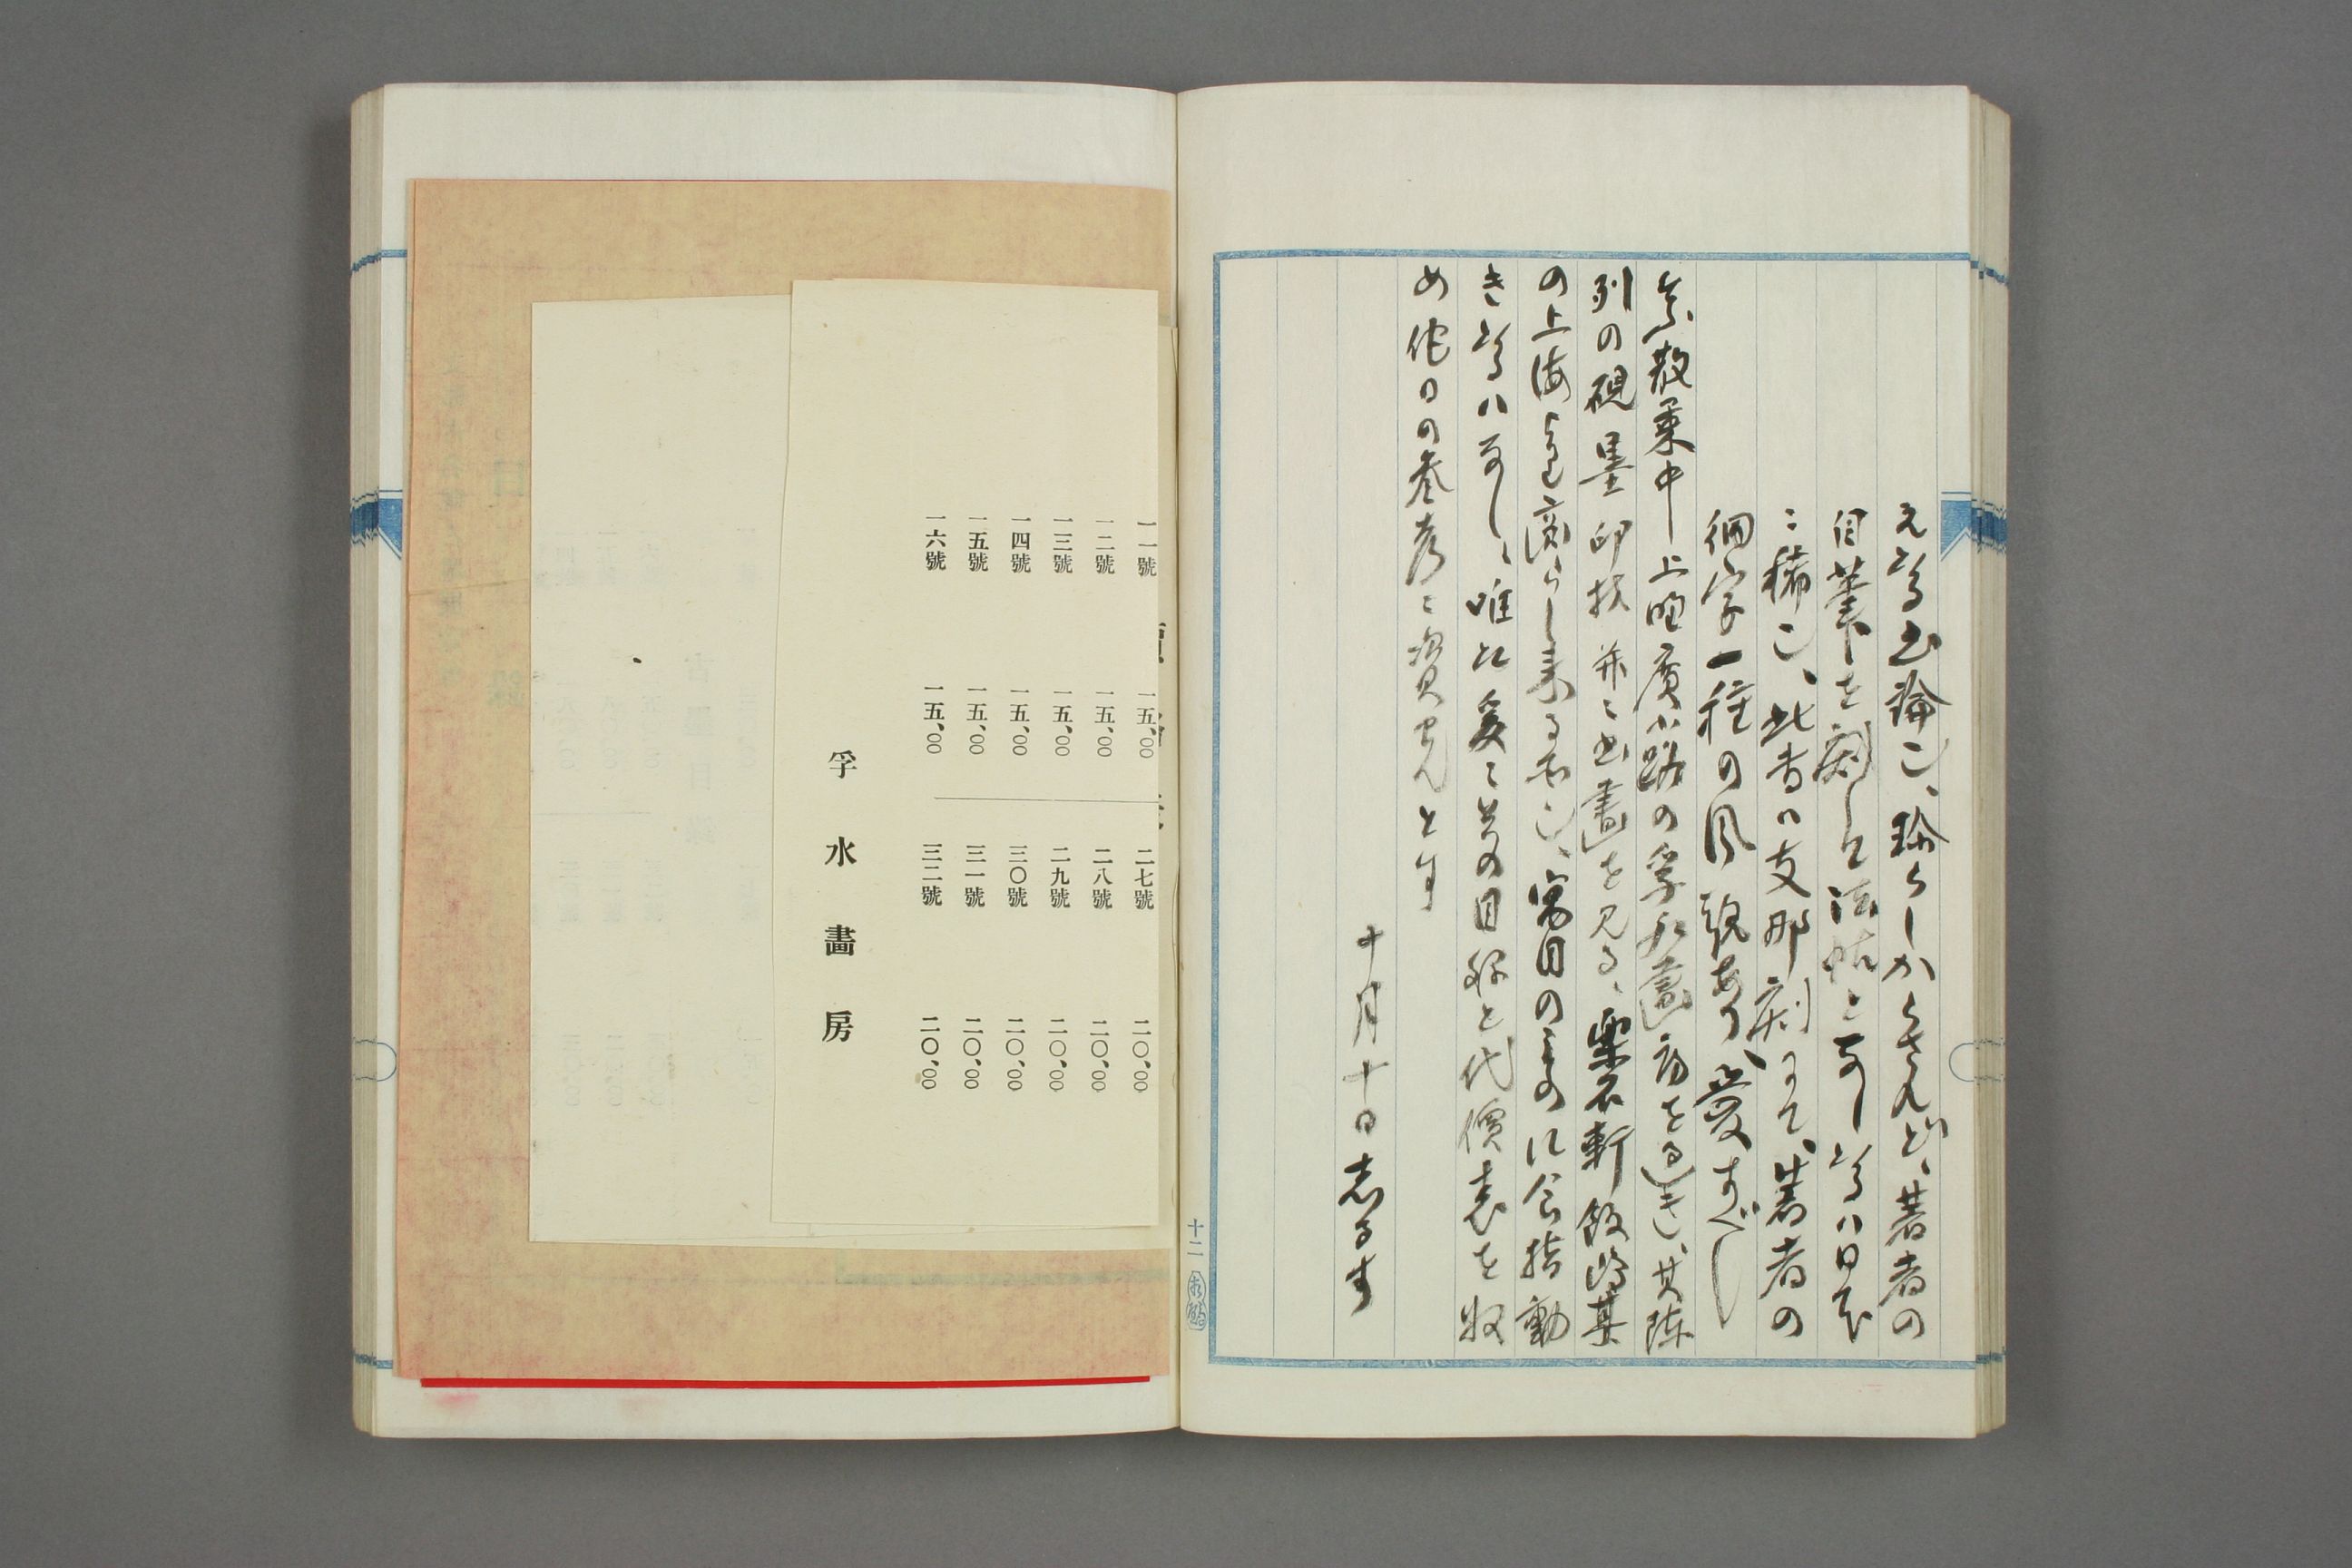 えたる書論也、珍らしからざれど、著者の
自筆を刻して法帖となしたるハ日本
ニ稀也、此書ハ支那刻にて、著者の
細字一種の風韻あり、愛すべし
散策中上野廣小路の孚水畫房を過き、其陳
列の硯墨印材并ニ書畫を見る、樂石軒飯嶋某
の上海より齎らし来る所也、寓目のものに食指動
きたるハなし、唯だ爰ニ其の目録と代價表を収
め他日の参考ニ資せんとす
十月十日志るす
十二
一一號 一五、〇〇 二七號 二〇、〇〇
一二號 一五、〇〇 二八號 二〇、〇〇
一三號 一五、〇〇 二九號 二〇、〇〇
一四號 一五、〇〇 三〇號 二〇、〇〇
一五號 一五、〇〇 三一號 二〇、〇〇
一六號 一五、〇〇 三二號 二〇、〇〇
孚水畫房